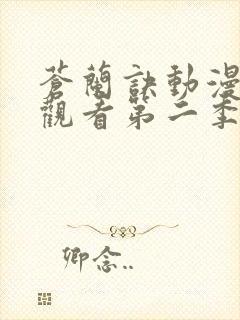 蒼蘭訣動漫
觀看第二季
卿念..